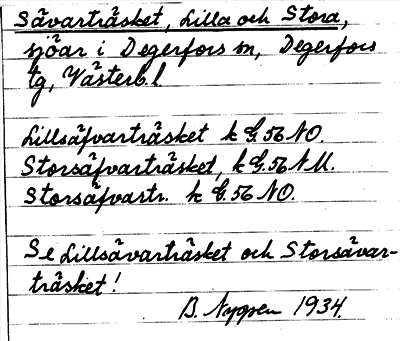 Sävarträsket, Lilla och Stora,
sjöar i Degerfors sn, Degerfors
tg, Västerb. l.
Lillsäfvarträsket k G. 56 NO.
Storsäfvarträsket, k G. 56 NU.
Storsäfvartr. k G. 56 NO.
Se Lillsävarträsket och Storsävar-
träsket!
B. 1934.